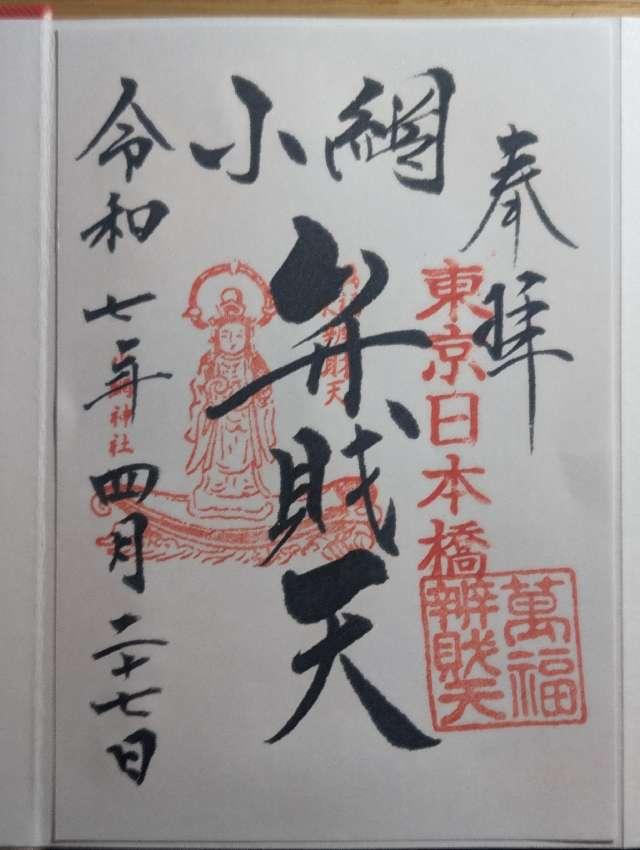 奉拝
東京日本橋
萬福
辨財天
小網
弁財天
辨財天
神社
令和七年四月二十七日